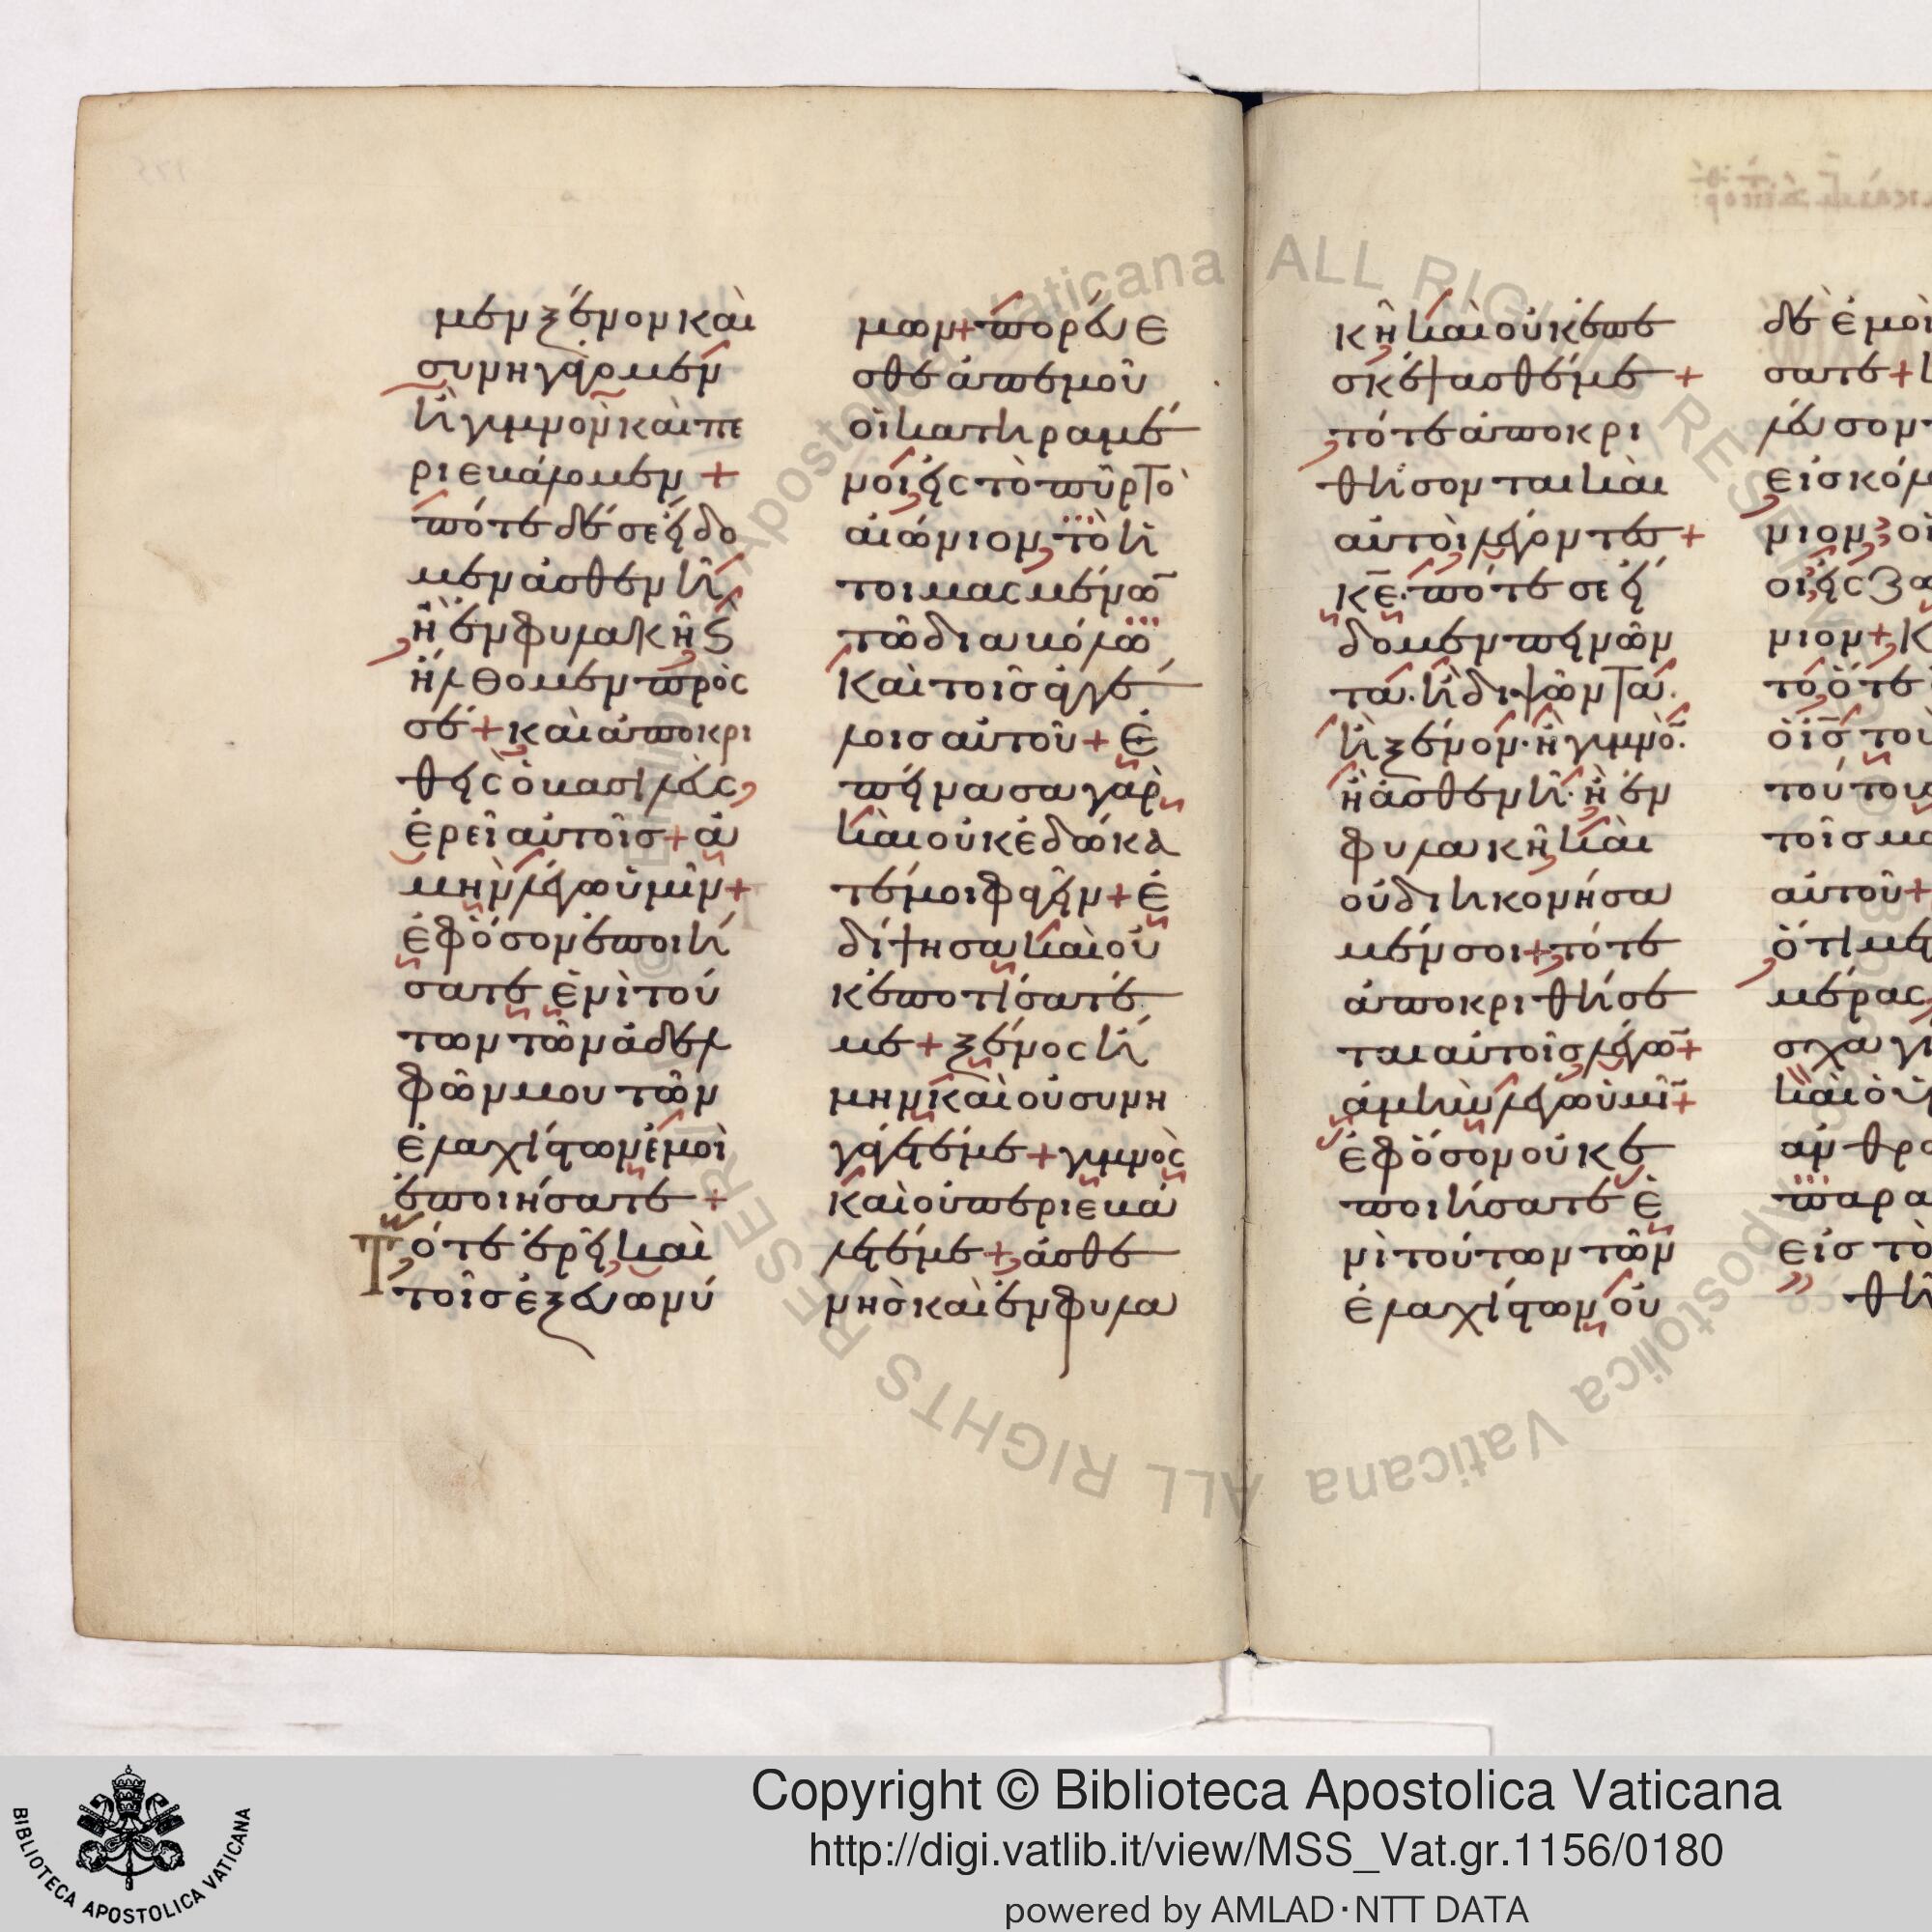 μεν ξένον καὶ
συνηγάγομεν
ἢ γυμνὸν καὶ πε
ριεβάλομεν +
πότε δέ σε εἴδο
μεν ἀσθενῆ,
ἢ ἐν φυλακῆ κ̀
ἤλθομεν πρὸς
σέ + καὶ ἀποκρι
θεὶς ὁ βασιλεὺς,
ἐρεῖ αὐτοῖς + ἀ
μὴν λέγω ὑμῖν +
ἐφ' ὅσον ἐποιή
σατε ἑνὶ τού
των τῶν ἀδελ
φῶν μου τῶν
ἐλαχίστων ἐμοὶ
ἐποιήσατε +
Τότε ἐρεῖ καὶ
τοῖς ἐξ εὐωνύ
μων + πορεύε
σθε ἀπ' ἐμοῦ
οἱ κατηραμέ
νοι εἰς τὸ πῦρ τὸ
αἰώνιον, τὸ ἡ
τοιμασμένω̄
τῶ διαβόλω
καὶ τοῖς ἀγγέ
λοις αὐτοῦ + ἐ
πείνασα γὰρ
καὶ οὐκ ἐδώκα
τέ μοι φαγεῖν + ἐ
δίψησα καὶ οὐ
κ ἐποτίσατέ
με + ξένος ἤ
μην καὶ οὐ συνη
γάγετέ με + γυμνὸς
καὶ οὐ περιεβά
λετέ με +, ἀσθε
νὴς καὶ ἐν φυλα
κῆ καὶ οὐκ ἐπε
σκέψασθέ με +
τότε ἀποκρι
θήσονται καὶ
αὐτοὶ λέγοντες +
κ̄ε̄· πότε σε εἴ
δομεν πεινῶν
τα· ἢ διψῶντα·
ἢ ξένον· ἢ γυμνὸ̄·
ἢ ἀσθενῆ· ἢ ἐν
φυλακῆ, καὶ
οὐ διηκονήσα
μέν σοι +, τότε
ἀποκριθήσε
ται αὐτοῖς λέγω̄ +
ἀμὴν λέγω ὑμῖ̄ +
ἐφ' ὅσον οὐκ ἐ
ποιήσατε ἑ
νὶ τούτων τῶν
ἐλαχίστων, οὐ
δὲ ἐμοὶ
σατε +
εἰς κό
νιον
νιον +
τὸ, ὅτε
ὁ ῑς̄ τοὺ
τούτου
τοῖς μα
αὐτοῦ +
ὅτι με
μέρας
καὶ ὁ υ
ἀνθρώ
παρα
εἰς τὸ
Copyright © Biblioteca Apostolica Vaticana
http://digi.vatlib.it/view/MSS_Vat.gr.1156/0180
powered by AMLAD·NTT DATA
BIBLIOTECA APOSTOLICA VATICANA